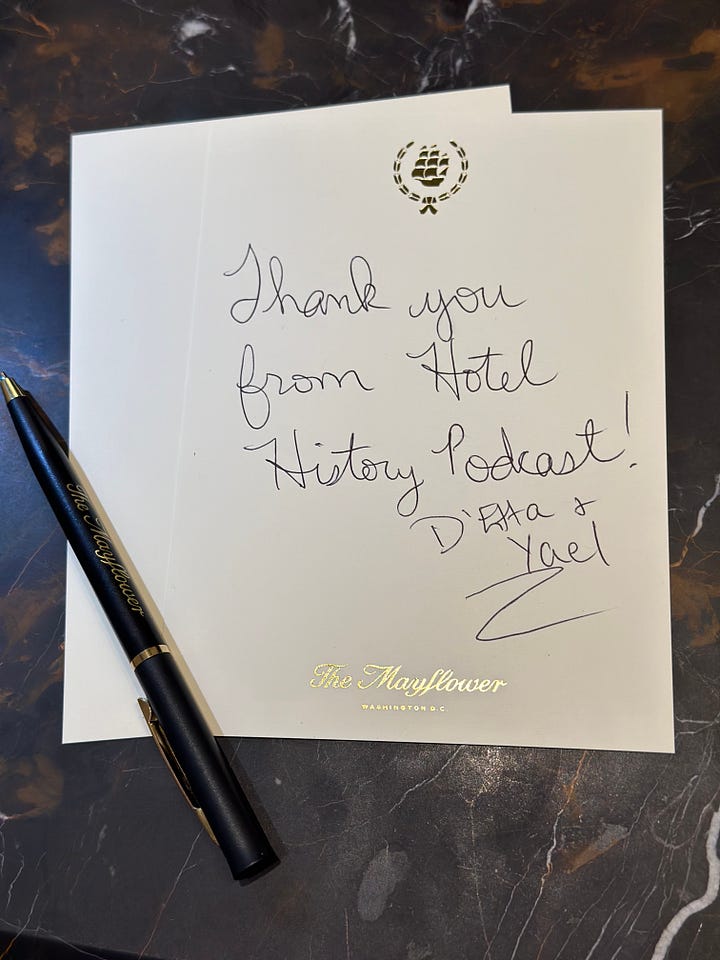 Thank you
from Hotel
History Podcast!
D'Etta +
Yael
The Mayflower
WASHINGTON D.C.
The Mayflower